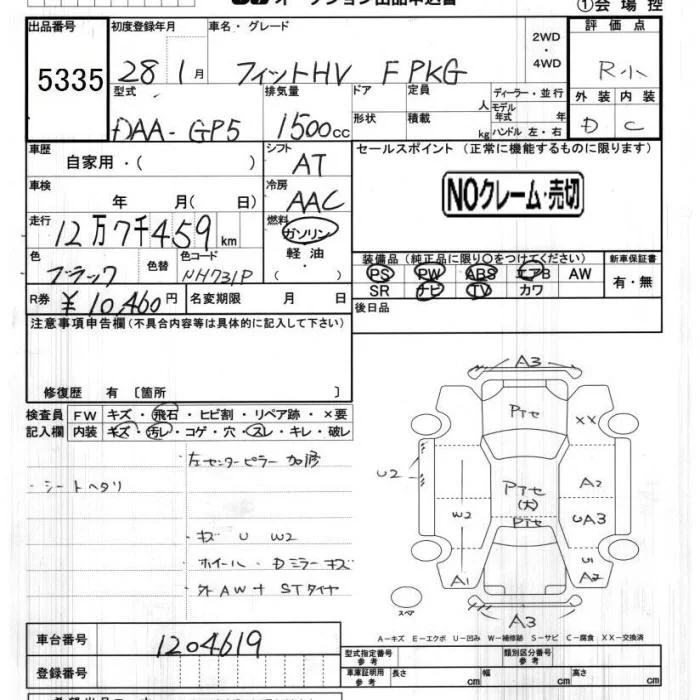 ①会場控
出品番号 初度登録年月 車名・グレード 2WD・4WD 評価点
5335 28 1月 フィットHV F PKG R小
型式 排気量 ドア 定員 人 ディーラー・並行 外装 内装
DAA-GP5 1500cc 形状 積載 kg モデル年式 年 ハンドル 左・右 D C
車歴 自家用・( ) シフト AT セールスポイント (正常に機能するものに限ります)
車検 年 月( 日) 冷房 AAC NOクレーム・売切
走行 12万7千459km 燃料 ガソリン
軽油・( )
色 ブラック 色替 色コード NH731P
装備品 (純正品に限り○をつけてください) 新車保証書
PS PW ABS エアB AW 有・無
SR ナビ TV カワ
R券 ¥10,460円 名変期限 月 日 後日品
注意事項申告欄 (不具合内容等は具体的に記入して下さい)
修復歴 有 〔箇所 〕
検査員 FW キズ・飛石・ヒビ割・リペア跡・×要
記入欄 内装 キズ・汚レ・コゲ・穴・スレ・キレ・破レ
・左センターピラー加修
・シートヘタリ
・キズ U W2
・ホイール・Dミラーキズ
・外AW+STタイヤ
A3
Pアセ XX
U2 A2
Pアセ
(大)
W2 Pアセ UA3
A1 U1
A2
スペア A3
A-キズ E-エクボ U-凹み W-補修跡 S-サビ C-腐食 XX-交換済
車台番号 1204619
型式指定番号 参考 類別区分番号 参考
登録番号 車庫証明用 参考 長さ cm 幅 cm 高さ cm